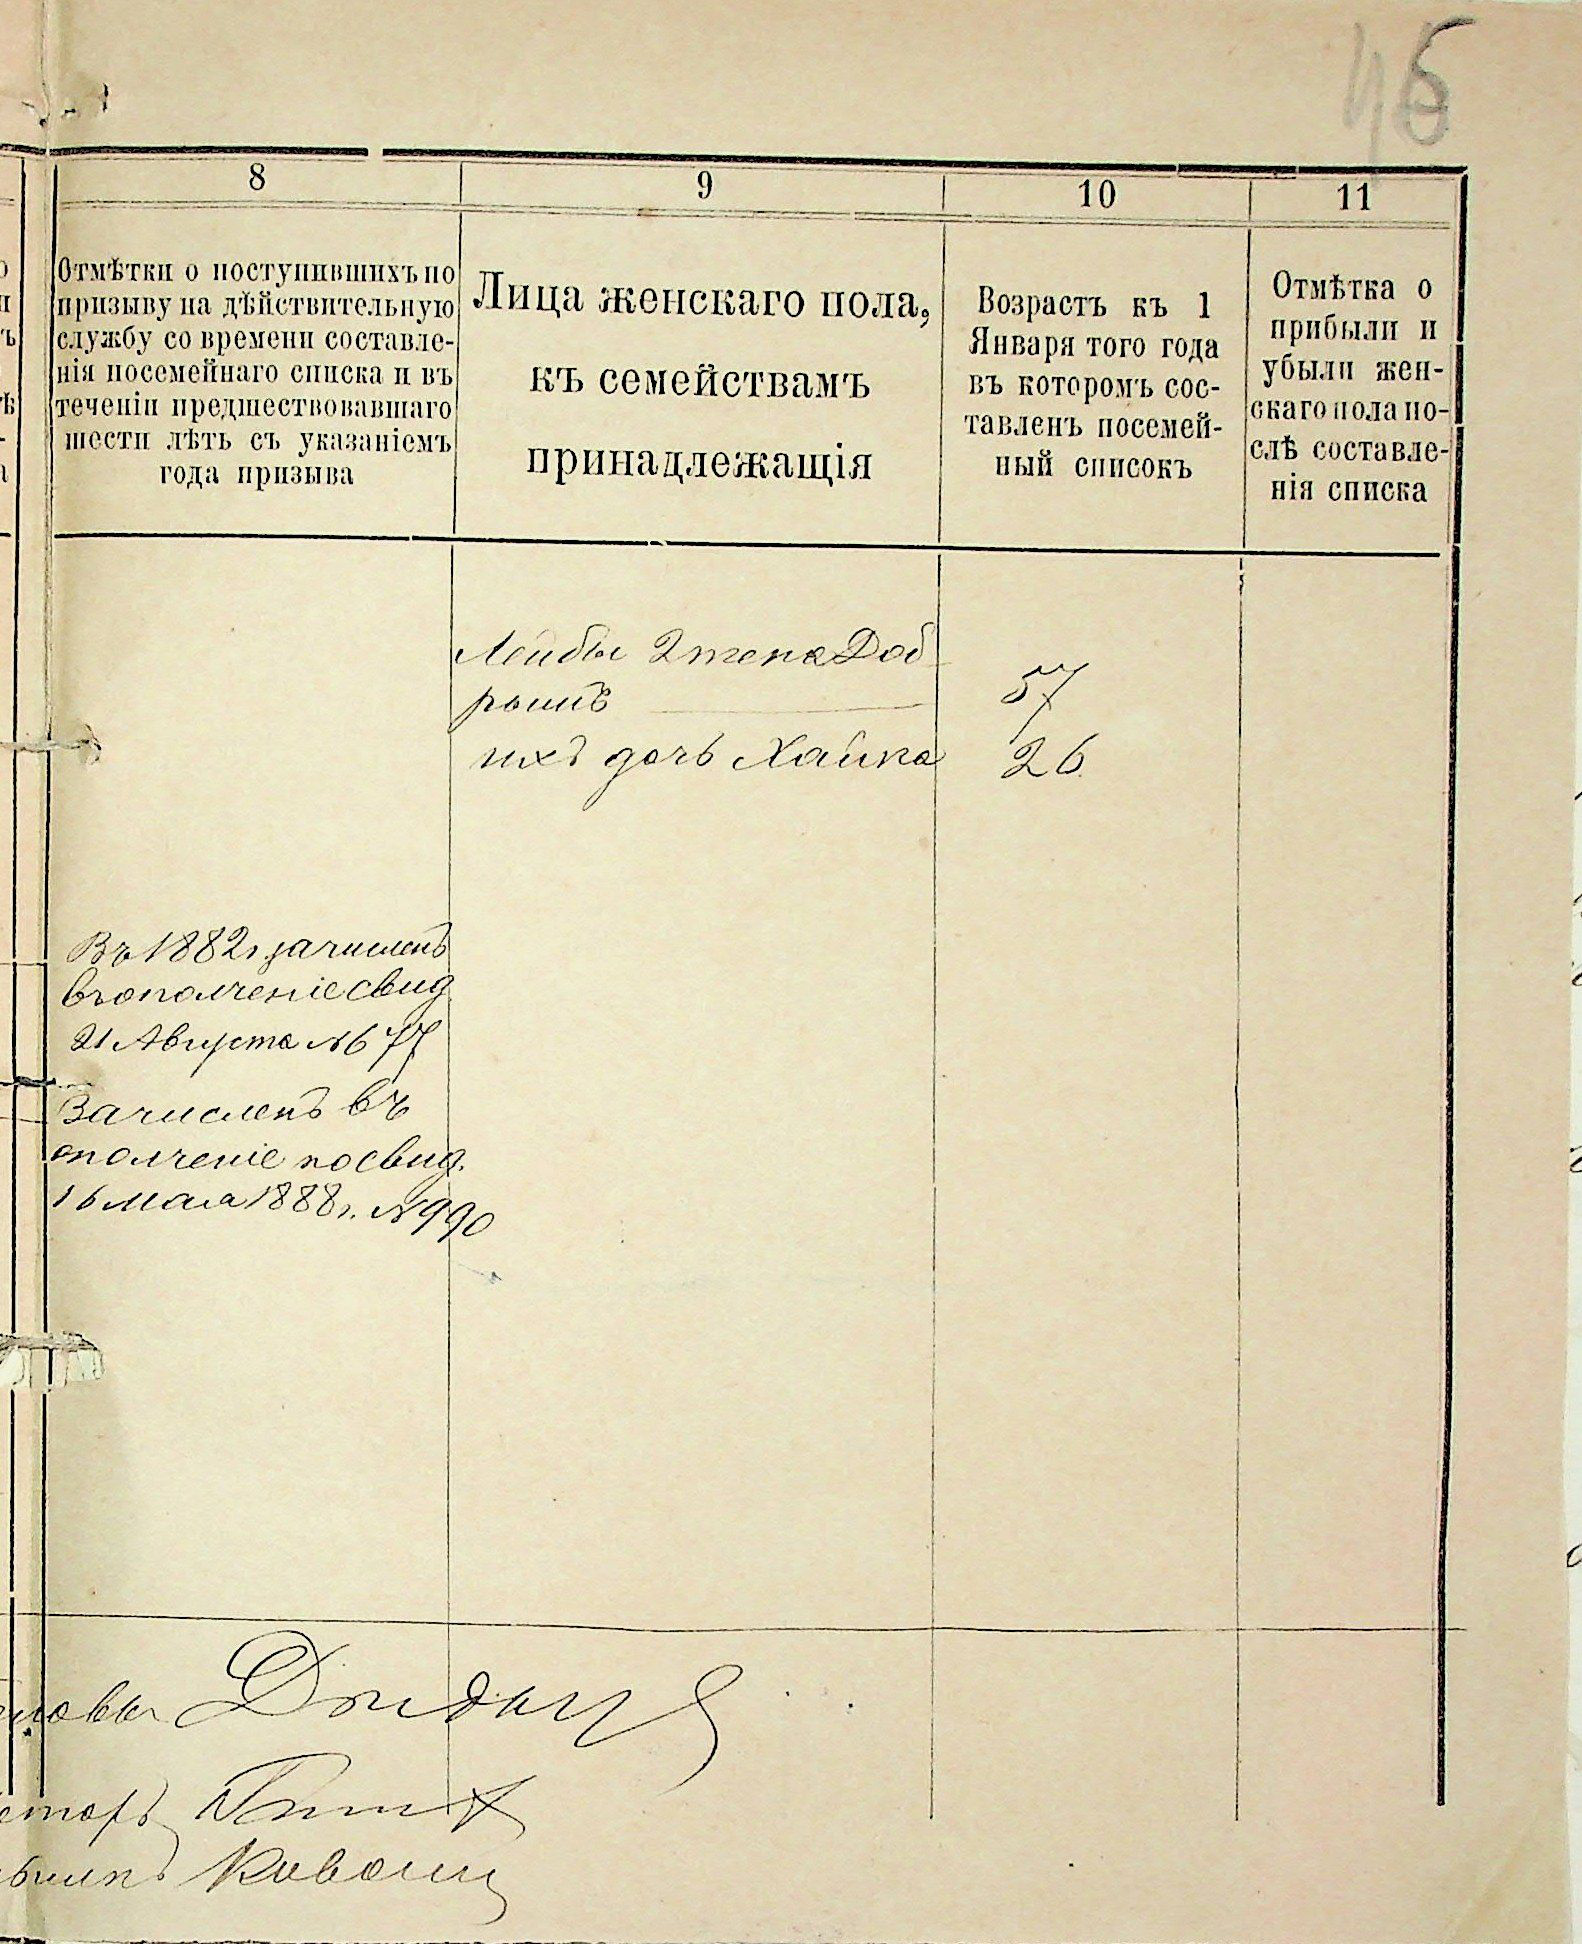 45
8
9
10
11
Отмѣтки о поступившихъ по
призыву на дѣйствительную
службу со времени составле-
нія посемейнаго списка и въ
теченіи предшествовавшаго
шести лѣтъ съ указаніемъ
года призыва
Лица женскаго пола,
къ семействамъ
принадлежащія
Возрастъ къ 1
Января того года
въ которомъ сос-
тавленъ посемей-
ный списокъ
Отмѣтка о
прибыли и
убыли жен-
скаго пола по-
слѣ составле-
нія списка
Лейбы 2 жена Доб
рышъ 57
ихъ дочь Хайка 26
Въ 1882 г. зачисленъ
въ ополченіе свид
21 Августа № 677
Зачисленъ въ
ополченіе по свид.
16 Мая 1888 г. № 990